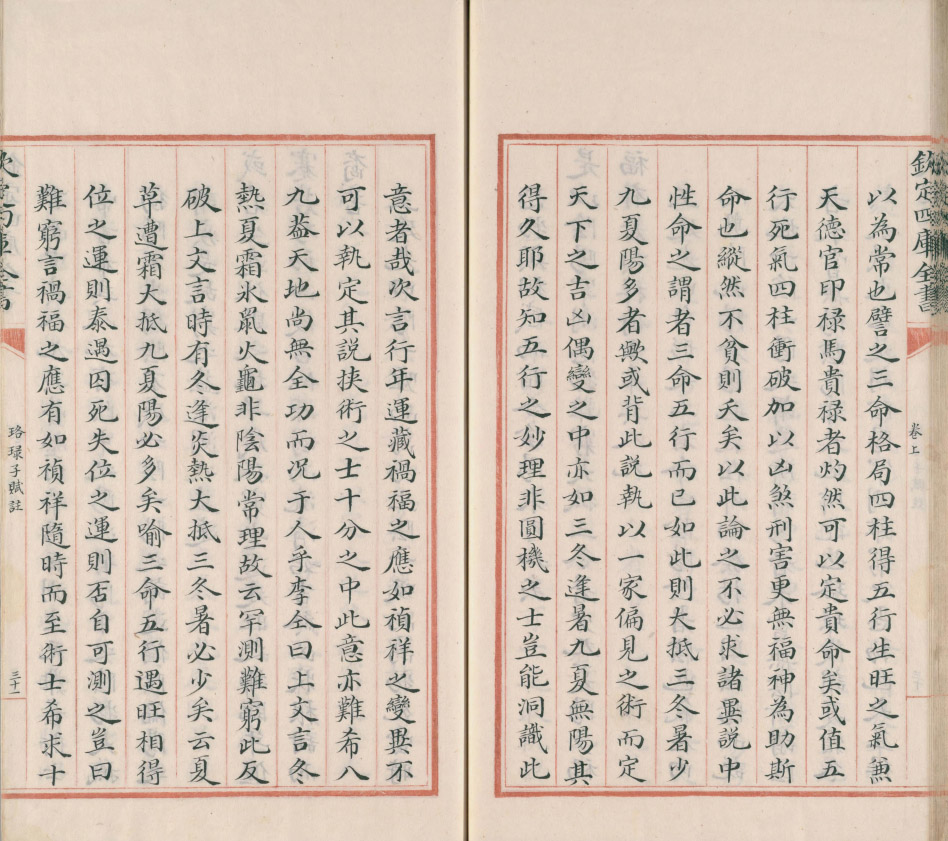 欽定四庫全書
卷上
以為常也譬之三命格局四柱得五行生旺之氣兼
天德官印禄馬貴禄者灼然可以定貴命矣或值五
行死氣四柱衝破加以凶煞刑害更無福神為助斯
命也縱然不貧則夭矣以此論之不必求諸異說中
性命之謂者三命五行而已如此則大抵三冬暑少
九夏陽多者歟或背此説執以一家偏見之術而定
天下之吉凶偶變之中亦如三冬逢暑九夏無陽其
得久耶故知五行之妙理非圓機之士豈能洞識此
意者哉次言行年運藏禍福之應如禎祥之變異不
可以執定其説挾術之士十分之中此意亦難希八
九葢天地尚無全功而况于人乎李仝曰上文言冬
熱夏霜氷鼠火龜非陰陽常理故云罕測難窮此反
破上文言時有冬逢炎熱大抵三冬暑必少矣云夏
草遭霜大抵九夏陽必多矣喻三命五行遇旺相得
位之運則泰遇囚死失位之運則否自可測之豈曰
難窮言禍福之應有如禎祥隨時而至術士希求十
欽定四庫全書
珞琭子賦註
三十一